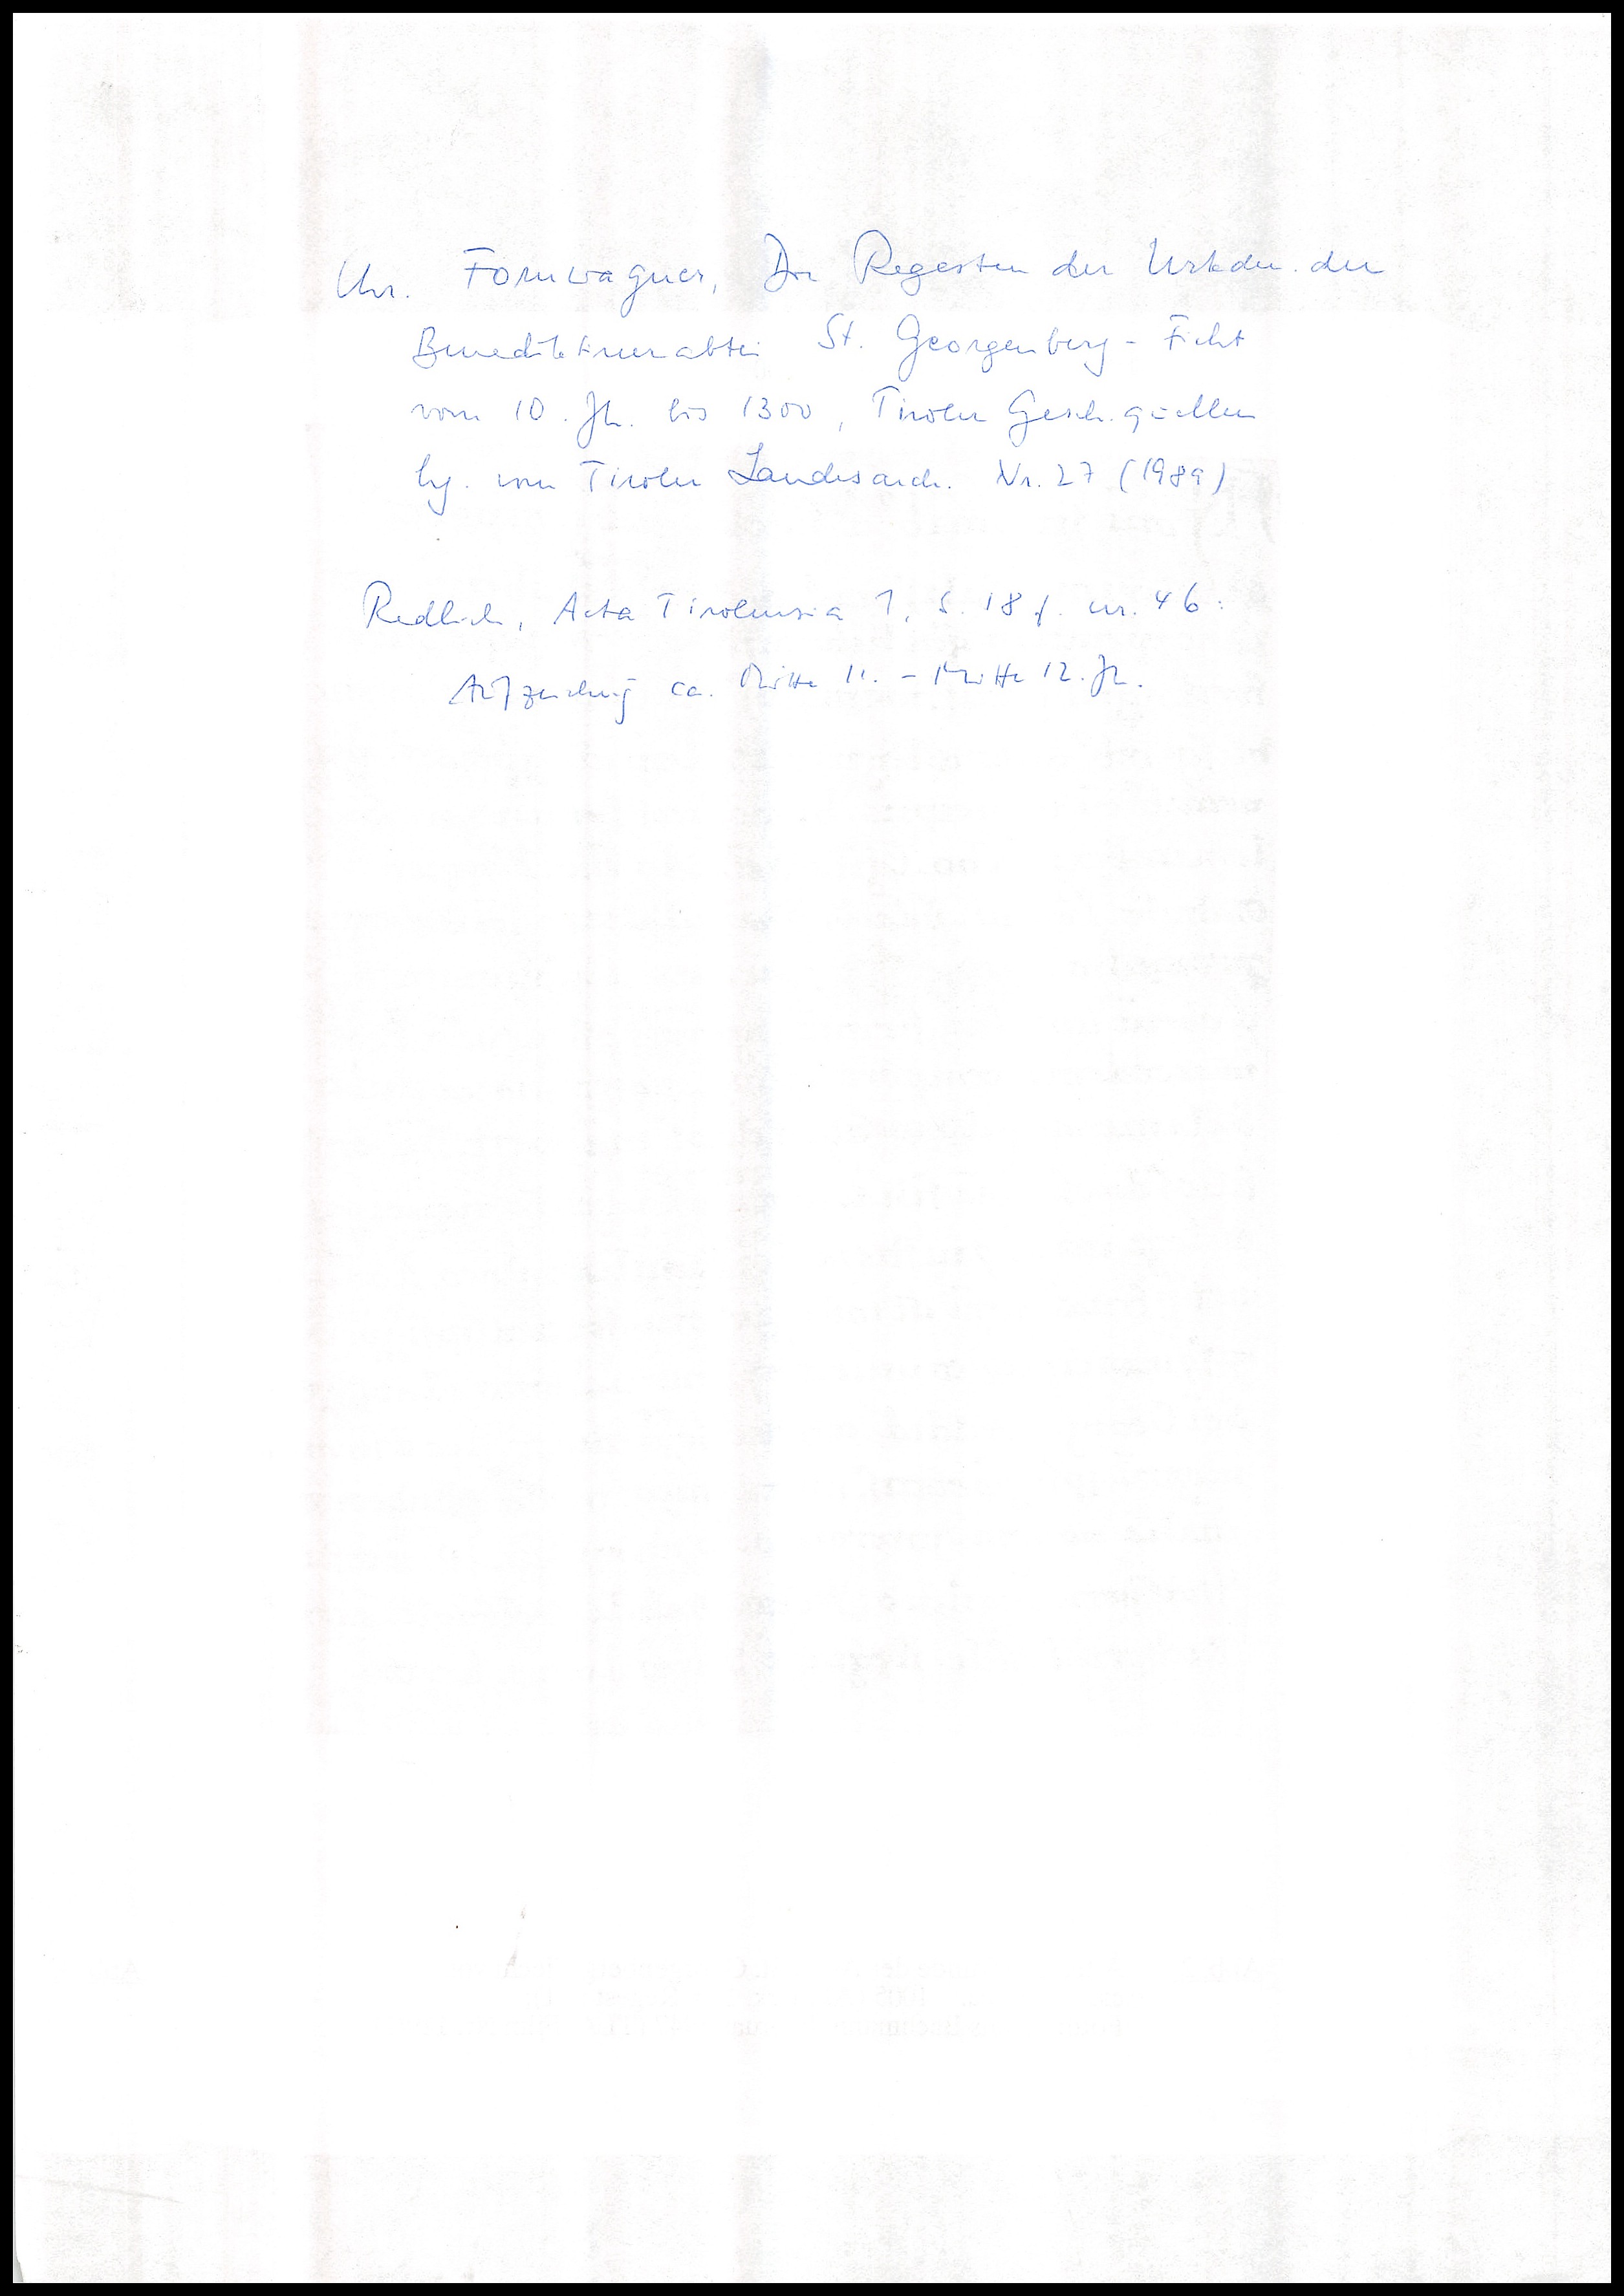 Chr. Fornwagner, Die Regesten der Urkden. der
Benediktinerabtei St. Georgenberg - Fiecht
vom 10. Jh. bis 1300, Tiroler Gesch.quellen
hg. vom Tiroler Landesarch. Nr. 27 (1989)
Redlich, Acta Tirolensia 1, S. 18 f. nr. 46:
Aufzeichng ca. Mitte 11. - Mitte 12. Jh.